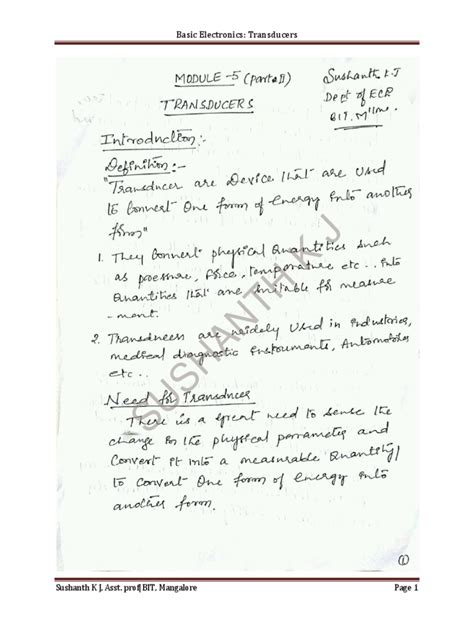 Basic Electronics: Transducers
MODULE -5 (Part-II)
Sushanth K.J
Dept of ECE
BIT, M'lore.
TRANSDUCERS
Introduction:-
Definition:-
"Transducer are Device that are Used
to Convert One form of energy Into another
form"
1. They Convert physical Quantities Such
as pressure, force, temperature etc... into
Quantities that are Suitable for measure
-ment.
2. Transducers are widely Used in industries,
medical diagnostic Instruments, Automobiles
etc..
Need for Transducer
There is a great need to sense the
change in the physical parameter and
Convert it into a measurable Quantity/
to Convert One form of energy into
another form.
SUSHANTH K J
1
Sushanth K J, Asst. prof|BIT, Mangalore
Page 1